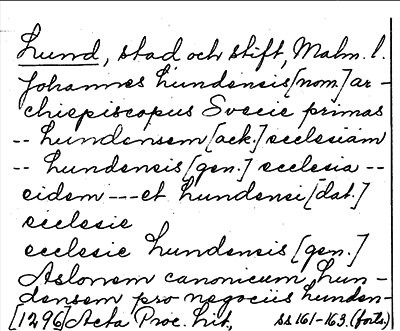 Lund, stad och stift, Malm. l.
Johannes Lundensis [nom.] ar-
chiepiscopus Svecie primas
-- Lundensem [ack.] ecclesiam
-- Lundensis [gen.] ecclesia --
eidem --- et Lundensi [dat.]
ecclesie
ecclesie Lundensis [gen.]
Aslonem canonicum Lun-
densem pro negociis Lunden-
[1296] Acta Proc. Lit., ss 161-163. (forts.)